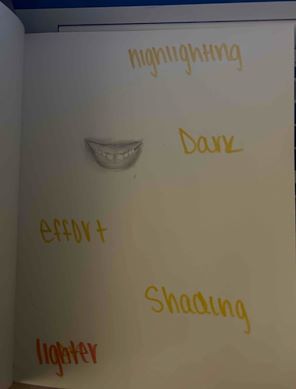 highlighting
Dark
effort
Shading
lighter